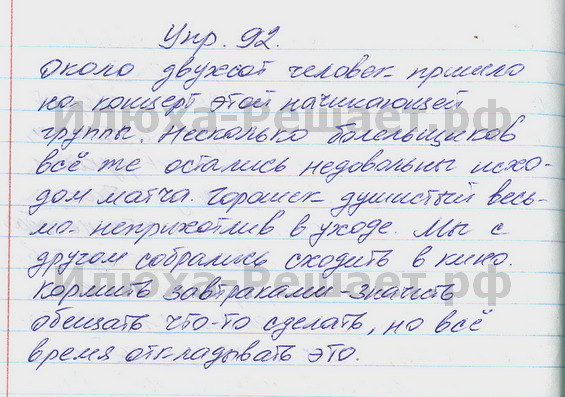 Упр. 92.
Около двухсот человек пришло
на концерт этой начинающей
группы. Несколько болельщиков
всё же остались недовольны исхо-
дом матча. Горошек душистый весь-
ма неприхотлив в уходе. Мы с
другом собрались сходить в кино.
Кормить завтраками-значить
обещать что-то сделать, но всё
время откладывать это.
Илюха-Решает.рф
Илюха-Решает.рф